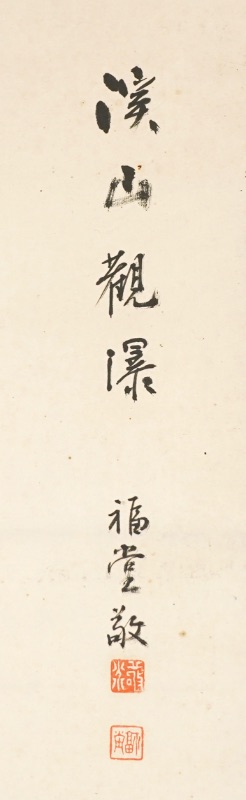 溪山觀瀑
福堂敬